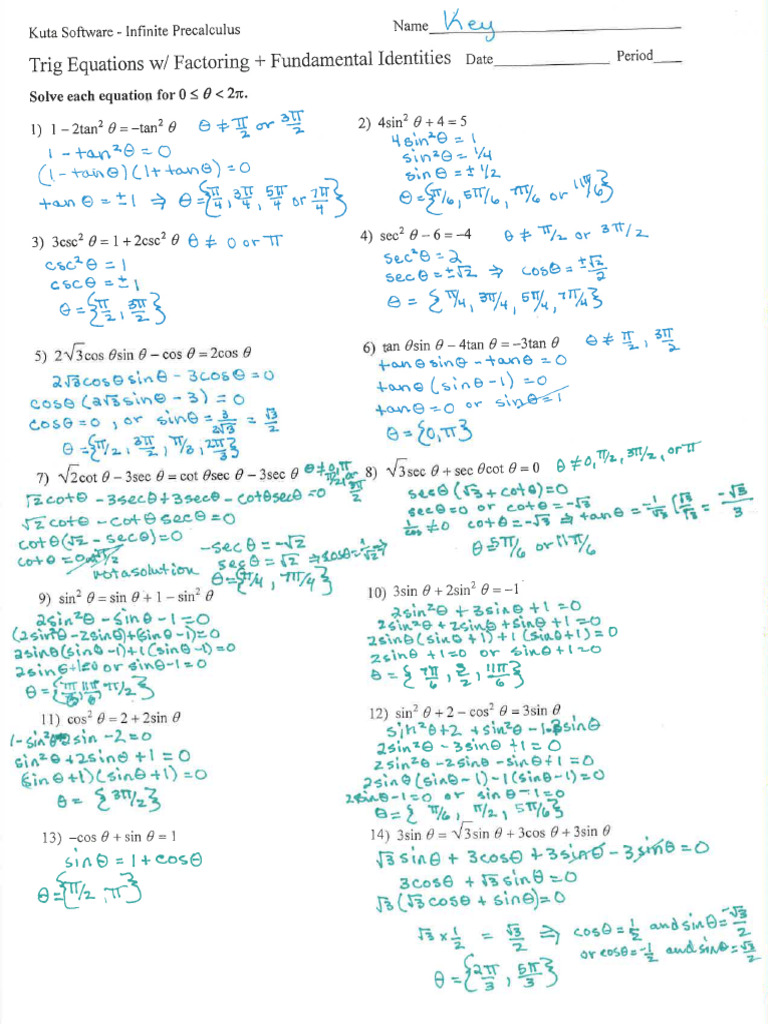 Kuta Software - Infinite Precalculus
Name Key
Trig Equations w/ Factoring + Fundamental Identities
Date
Period
Solve each equation for 0 ≤ θ < 2π.
1) 1 − 2tan² θ = −tan² θ θ ≠ π/2 or 3π/2
1 − tan²θ = 0
(1 − tanθ)(1 + tanθ) = 0
tanθ = ±1 ⇒ θ = {π/4, 3π/4, 5π/4 or 7π/4}
2) 4sin² θ + 4 = 5
4sin²θ = 1
sin²θ = 1/4
sinθ = ± 1/2
θ = {π/6, 5π/6, 7π/6 or 11π/6}
3) 3csc² θ = 1 + 2csc² θ θ ≠ 0 or π
csc²θ = 1
cscθ = ±1
θ = {π/2, 3π/2}
4) sec² θ − 6 = −4 θ ≠ π/2 or 3π/2
sec²θ = 2
secθ = ±√2 ⇒ cosθ = ±√2/2
θ = {π/4, 3π/4, 5π/4, 7π/4}
5) 2√3cos θsin θ − cos θ = 2cos θ
2√3cosθsinθ − 3cosθ = 0
cosθ(2√3sinθ − 3) = 0
cosθ = 0, or sinθ = 3/2√3 = √3/2
θ = {π/2, 3π/2, π/3, 2π/3}
6) tan θsin θ − 4tan θ = −3tan θ θ ≠ π/2, 3π/2
tanθsinθ − tanθ = 0
tanθ(sinθ − 1) = 0
tanθ = 0 or sinθ = 1
θ = {0, π}
7) √2cot θ − 3sec θ = cot θsec θ − 3sec θ θ ≠ 0, π, π/2, or 3π/2
√2cotθ − 3secθ + 3secθ − cotθsecθ = 0
√2cotθ − cotθsecθ = 0
cotθ(√2 − secθ) = 0
cotθ = 0
not a solution
−secθ = −√2
secθ = √2 ⇒ cosθ = 1/√2
θ = {π/4, 7π/4}
8) √3sec θ + sec θcot θ = 0 θ ≠ 0, π/2, 3π/2, or π
secθ(√3 + cotθ) = 0
secθ = 0 or cotθ = −√3
1/cos ≠ 0 cotθ = −√3 ⇒ tanθ = −1/√3 (√3/√3 = −√3/3
θ = 5π/6 or 11π/6
9) sin² θ = sin θ + 1 − sin² θ
2sin²θ − sinθ − 1 = 0
(2sin²θ − 2sinθ) + (sinθ − 1) = 0
2sinθ(sinθ − 1) + 1(sinθ − 1) = 0
2sinθ + 1 = 0 or sinθ − 1 = 0
θ = {7π/6, 11π/6, π/2}
10) 3sin θ + 2sin² θ = −1
2sin²θ + 3sinθ + 1 = 0
2sin²θ + 2sinθ + sinθ + 1 = 0
2sinθ(sinθ + 1) + 1(sinθ + 1) = 0
2sinθ + 1 = 0 or sinθ + 1 = 0
θ = {7π/6, 3/2, 11π/6}
11) cos² θ = 2 + 2sin θ
1 − sin²θ − 2sin − 2 = 0
sin²θ + 2sinθ + 1 = 0
(sinθ + 1)(sinθ + 1) = 0
θ = {3π/2}
12) sin² θ + 2 − cos² θ = 3sin θ
sin²θ + 2 + sin²θ − 1 = 3sinθ
2sin²θ − 3sinθ + 1 = 0
2sin²θ − 2sinθ − sinθ + 1 = 0
2sinθ(sinθ − 1) − 1(sinθ − 1) = 0
2sinθ − 1 = 0 or sinθ − 1 = 0
θ = {π/6, π/2, 5π/6}
13) −cos θ + sin θ = 1
sinθ = 1 + cosθ
θ = {π/2, π}
14) 3sin θ = √3sin θ + 3cos θ + 3sin θ
√3sinθ + 3cosθ + 3sinθ − 3sinθ = 0
3cosθ + √3sinθ = 0
√3(√3cosθ + sinθ) = 0
√3 × 1/2 = √3/2 ⇒ cosθ = 1/2 and sinθ = −√3/2
or cosθ = −1/2 and sinθ = √3/2
θ = {2π/3, 5π/3}